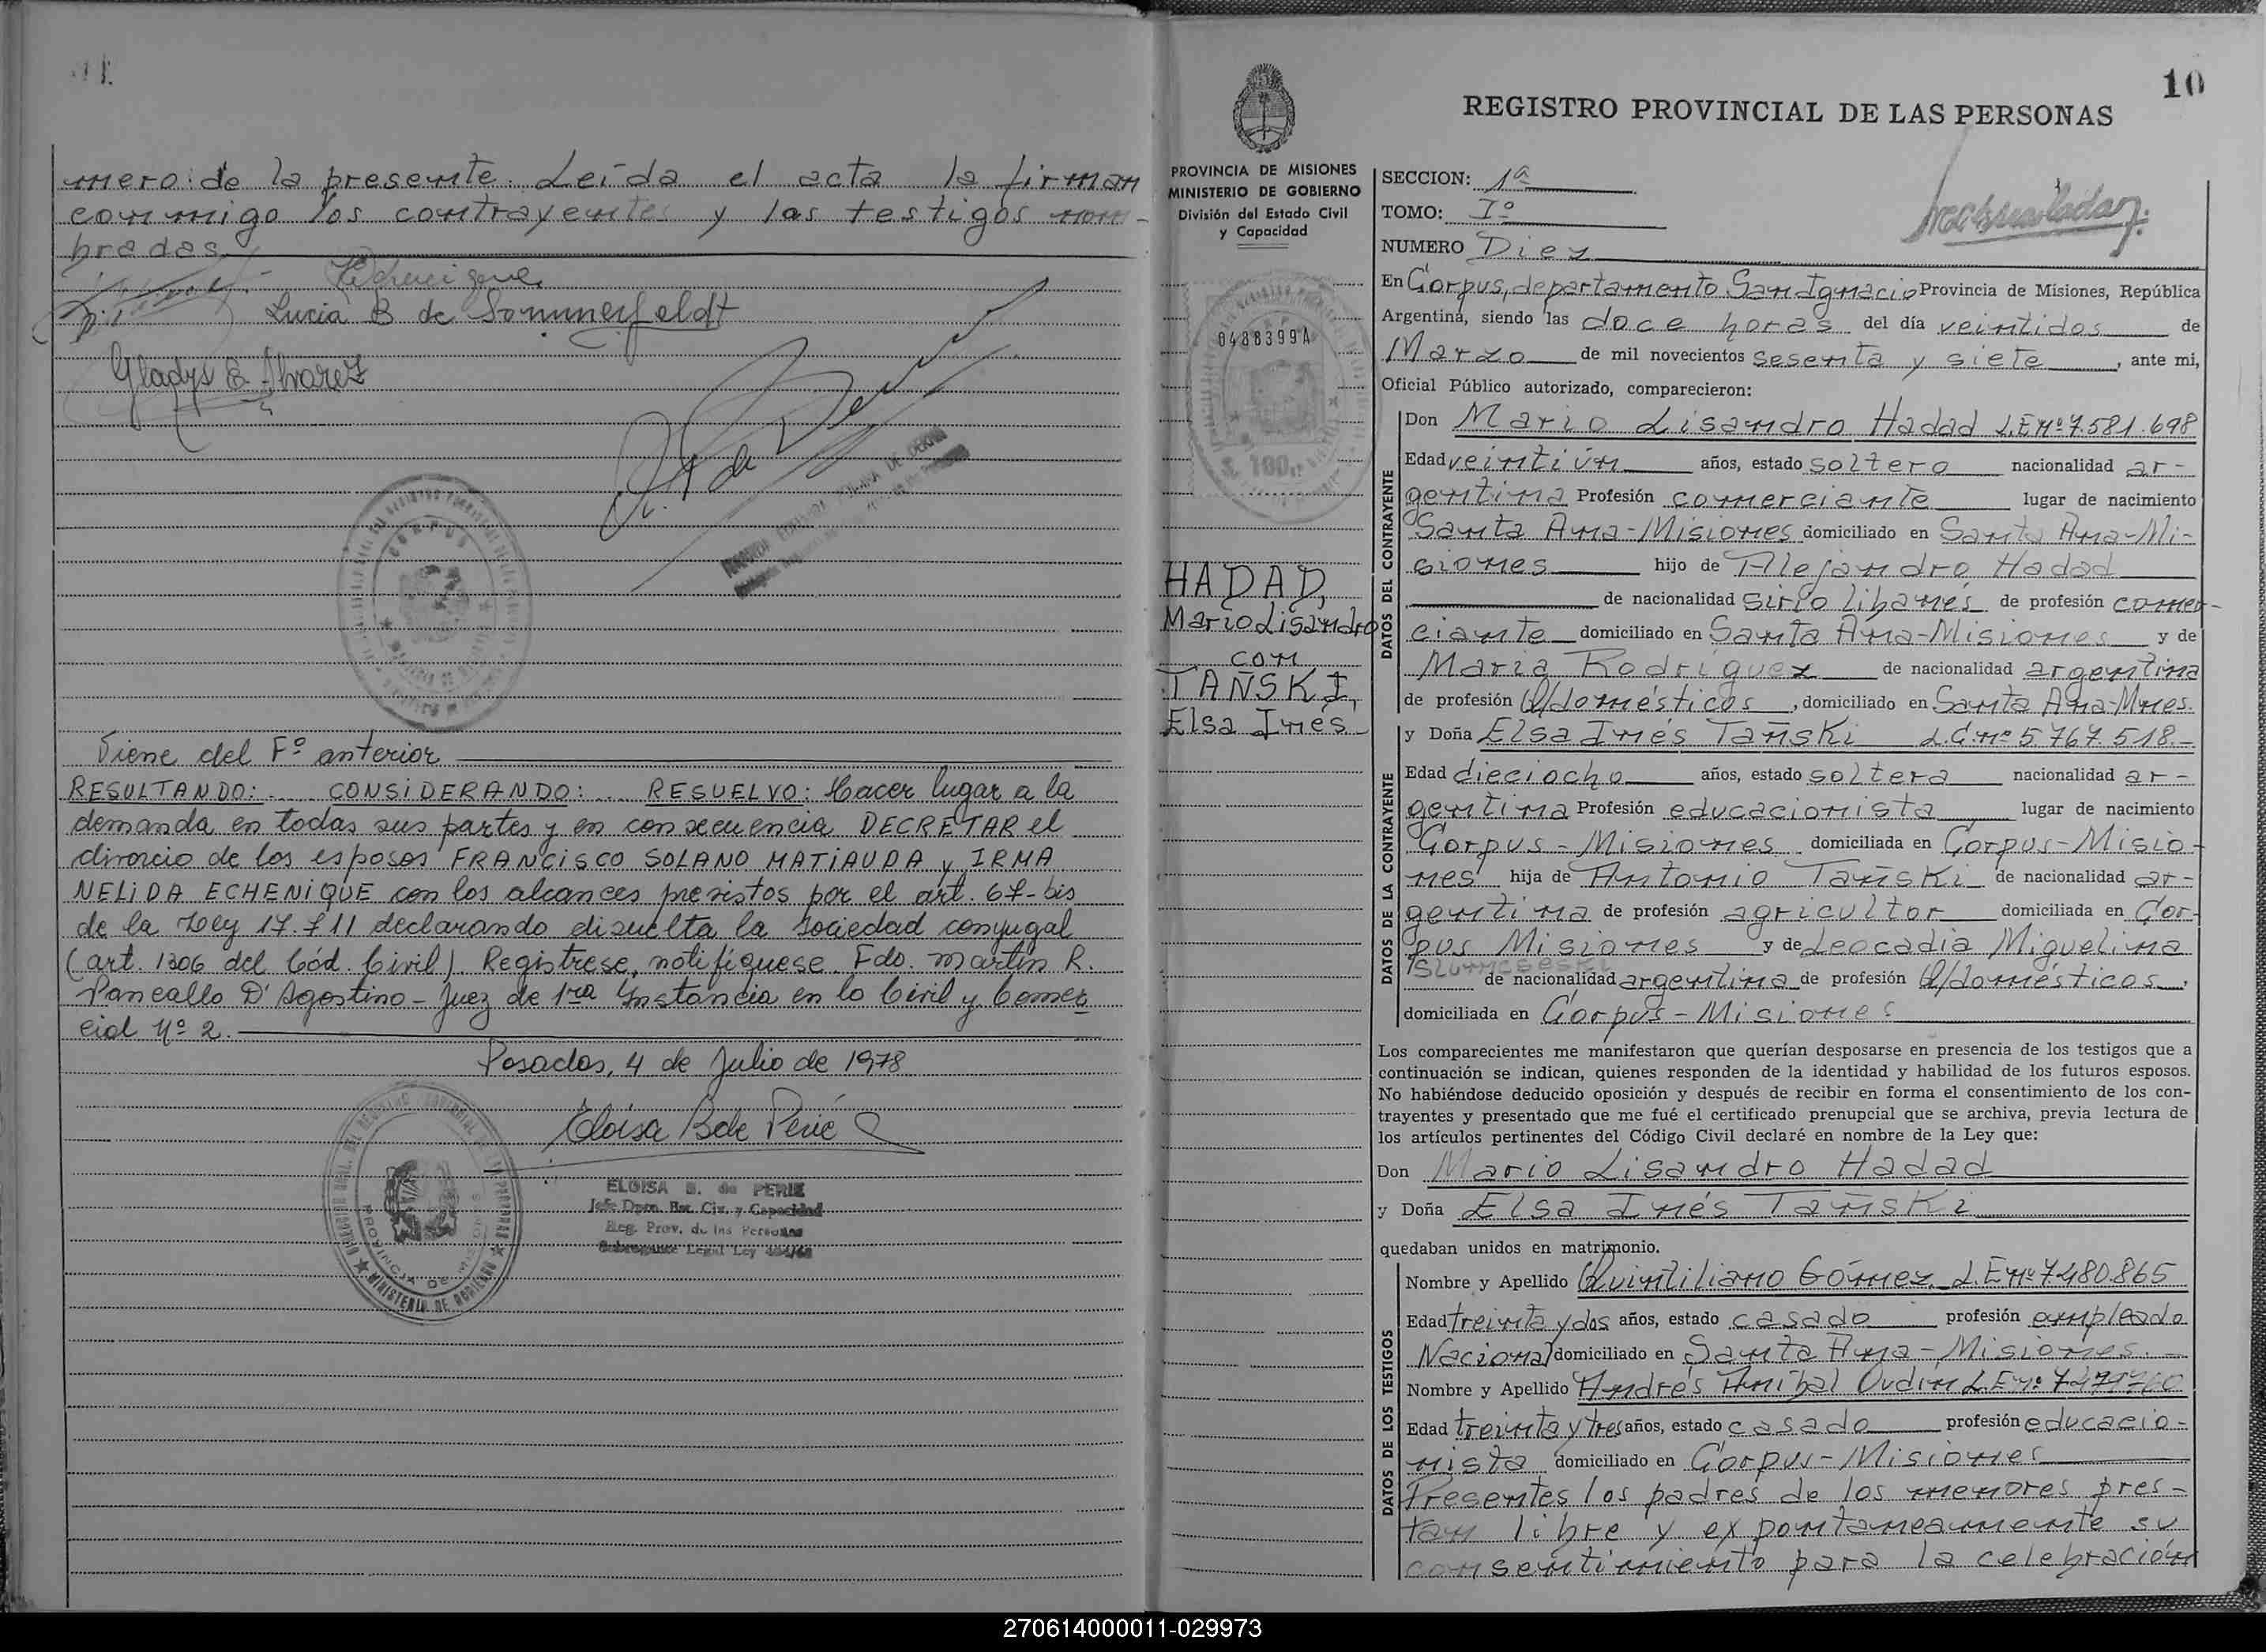 mero de la presente. Leída el acta la firman
conmigo los contrayentes y las testigos nom-
bradas
Echenique
Lucia B de Sommerfeldt
Gladys E. Alvarez
CORPUS
Viene del Fº anterior
RESULTANDO: .... CONSIDERANDO: .... RESUELVO: Hacer lugar a la
demanda en todas sus partes y en consecuencia DECRETAR el
divorcio de los esposos FRANCISCO SOLANO MATIAUDA y IRMA
NELIDA ECHENIQUE con los alcances previstos por el art. 67-bis
de la Ley 17.711 declarando disuelta la sociedad conyugal
(art. 1306 del Cód. Civil) Registrese, notifíquese. Fdo. Martin R.
Pancallo D'Agostino - Juez de 1ra Instancia en lo Civil y Comer
cial Nº 2.
Posadas, 4 de Julio de 1978
Eloisa B de Perié
ELOISA B. de PERIE
Jefe Dpto. Est. Civ. y Capacidad
Reg. Prov. de las Personas
Subrogante Legal Ley
PROVINCIA DE MISIONES
MINISTERIO DE GOBIERNO
División del Estado Civil
y Capacidad
0488399A
HADAD,
Mario Lisandro
con
TAÑSKI,
Elsa Inés
10
REGISTRO PROVINCIAL DE LAS PERSONAS
SECCION: 1ª
TOMO: Iº
NUMERO Diez
En Corpus, departamento San Ignacio Provincia de Misiones, República
Argentina, siendo las doce horas del día veintidos de
Marzo de mil novecientos sesenta y siete, ante mi,
Oficial Público autorizado, comparecieron:
DATOS DEL CONTRAYENTE
Don Mario Lisandro Hadad L.E nº 7.581.698
Edad veintiún años, estado soltero nacionalidad ar-
gentina Profesión comerciante lugar de nacimiento
Santa Ana-Misiones domiciliado en Santa Ana-Mi-
siones hijo de Alejandro Hadad
de nacionalidad sirio libanés de profesión comer-
ciante domiciliado en Santa Ana-Misiones y de
Maria Rodriguez de nacionalidad argentina
de profesión Q/domésticos, domiciliado en Santa Ana-Mnes.
DATOS DE LA CONTRAYENTE
y Doña Elsa Inés Tañski L.C. nº 5.767.518.-
Edad dieciocho años, estado soltera nacionalidad ar-
gentina Profesión educacionista lugar de nacimiento
Corpus - Misiones domiciliada en Corpus-Misio-
nes hija de Antonio Tañski de nacionalidad ar-
gentina de profesión agricultor domiciliada en Cor-
pus Misiones y de Leocadia Miguelina
de nacionalidad argentina de profesión Q/domésticos,
domiciliada en Corpus - Misiones
Los comparecientes me manifestaron que querían desposarse en presencia de los testigos que a
continuación se indican, quienes responden de la identidad y habilidad de los futuros esposos.
No habiéndose deducido oposición y después de recibir en forma el consentimiento de los con-
trayentes y presentado que me fué el certificado prenupcial que se archiva, previa lectura de
los artículos pertinentes del Código Civil declaré en nombre de la Ley que:
Don Mario Lisandro Hadad
y Doña Elsa Inés Tañski
quedaban unidos en matrimonio.
DATOS DE LOS TESTIGOS
Nombre y Apellido Quintiliano Gómez L.E nº 7480.865
Edad treinta y dos años, estado casado profesión empleado
Nacional domiciliado en Santa Ana-Misiones.-
Nombre y Apellido Andrés Anibal Oudin L.E nº
Edad treinta y tres años, estado casado profesión educacio-
nista domiciliado en Corpus-Misiones
Presentes los padres de los menores pres-
tan libre y expontaneamente su
consentimiento para la celebración
270614000011-029973